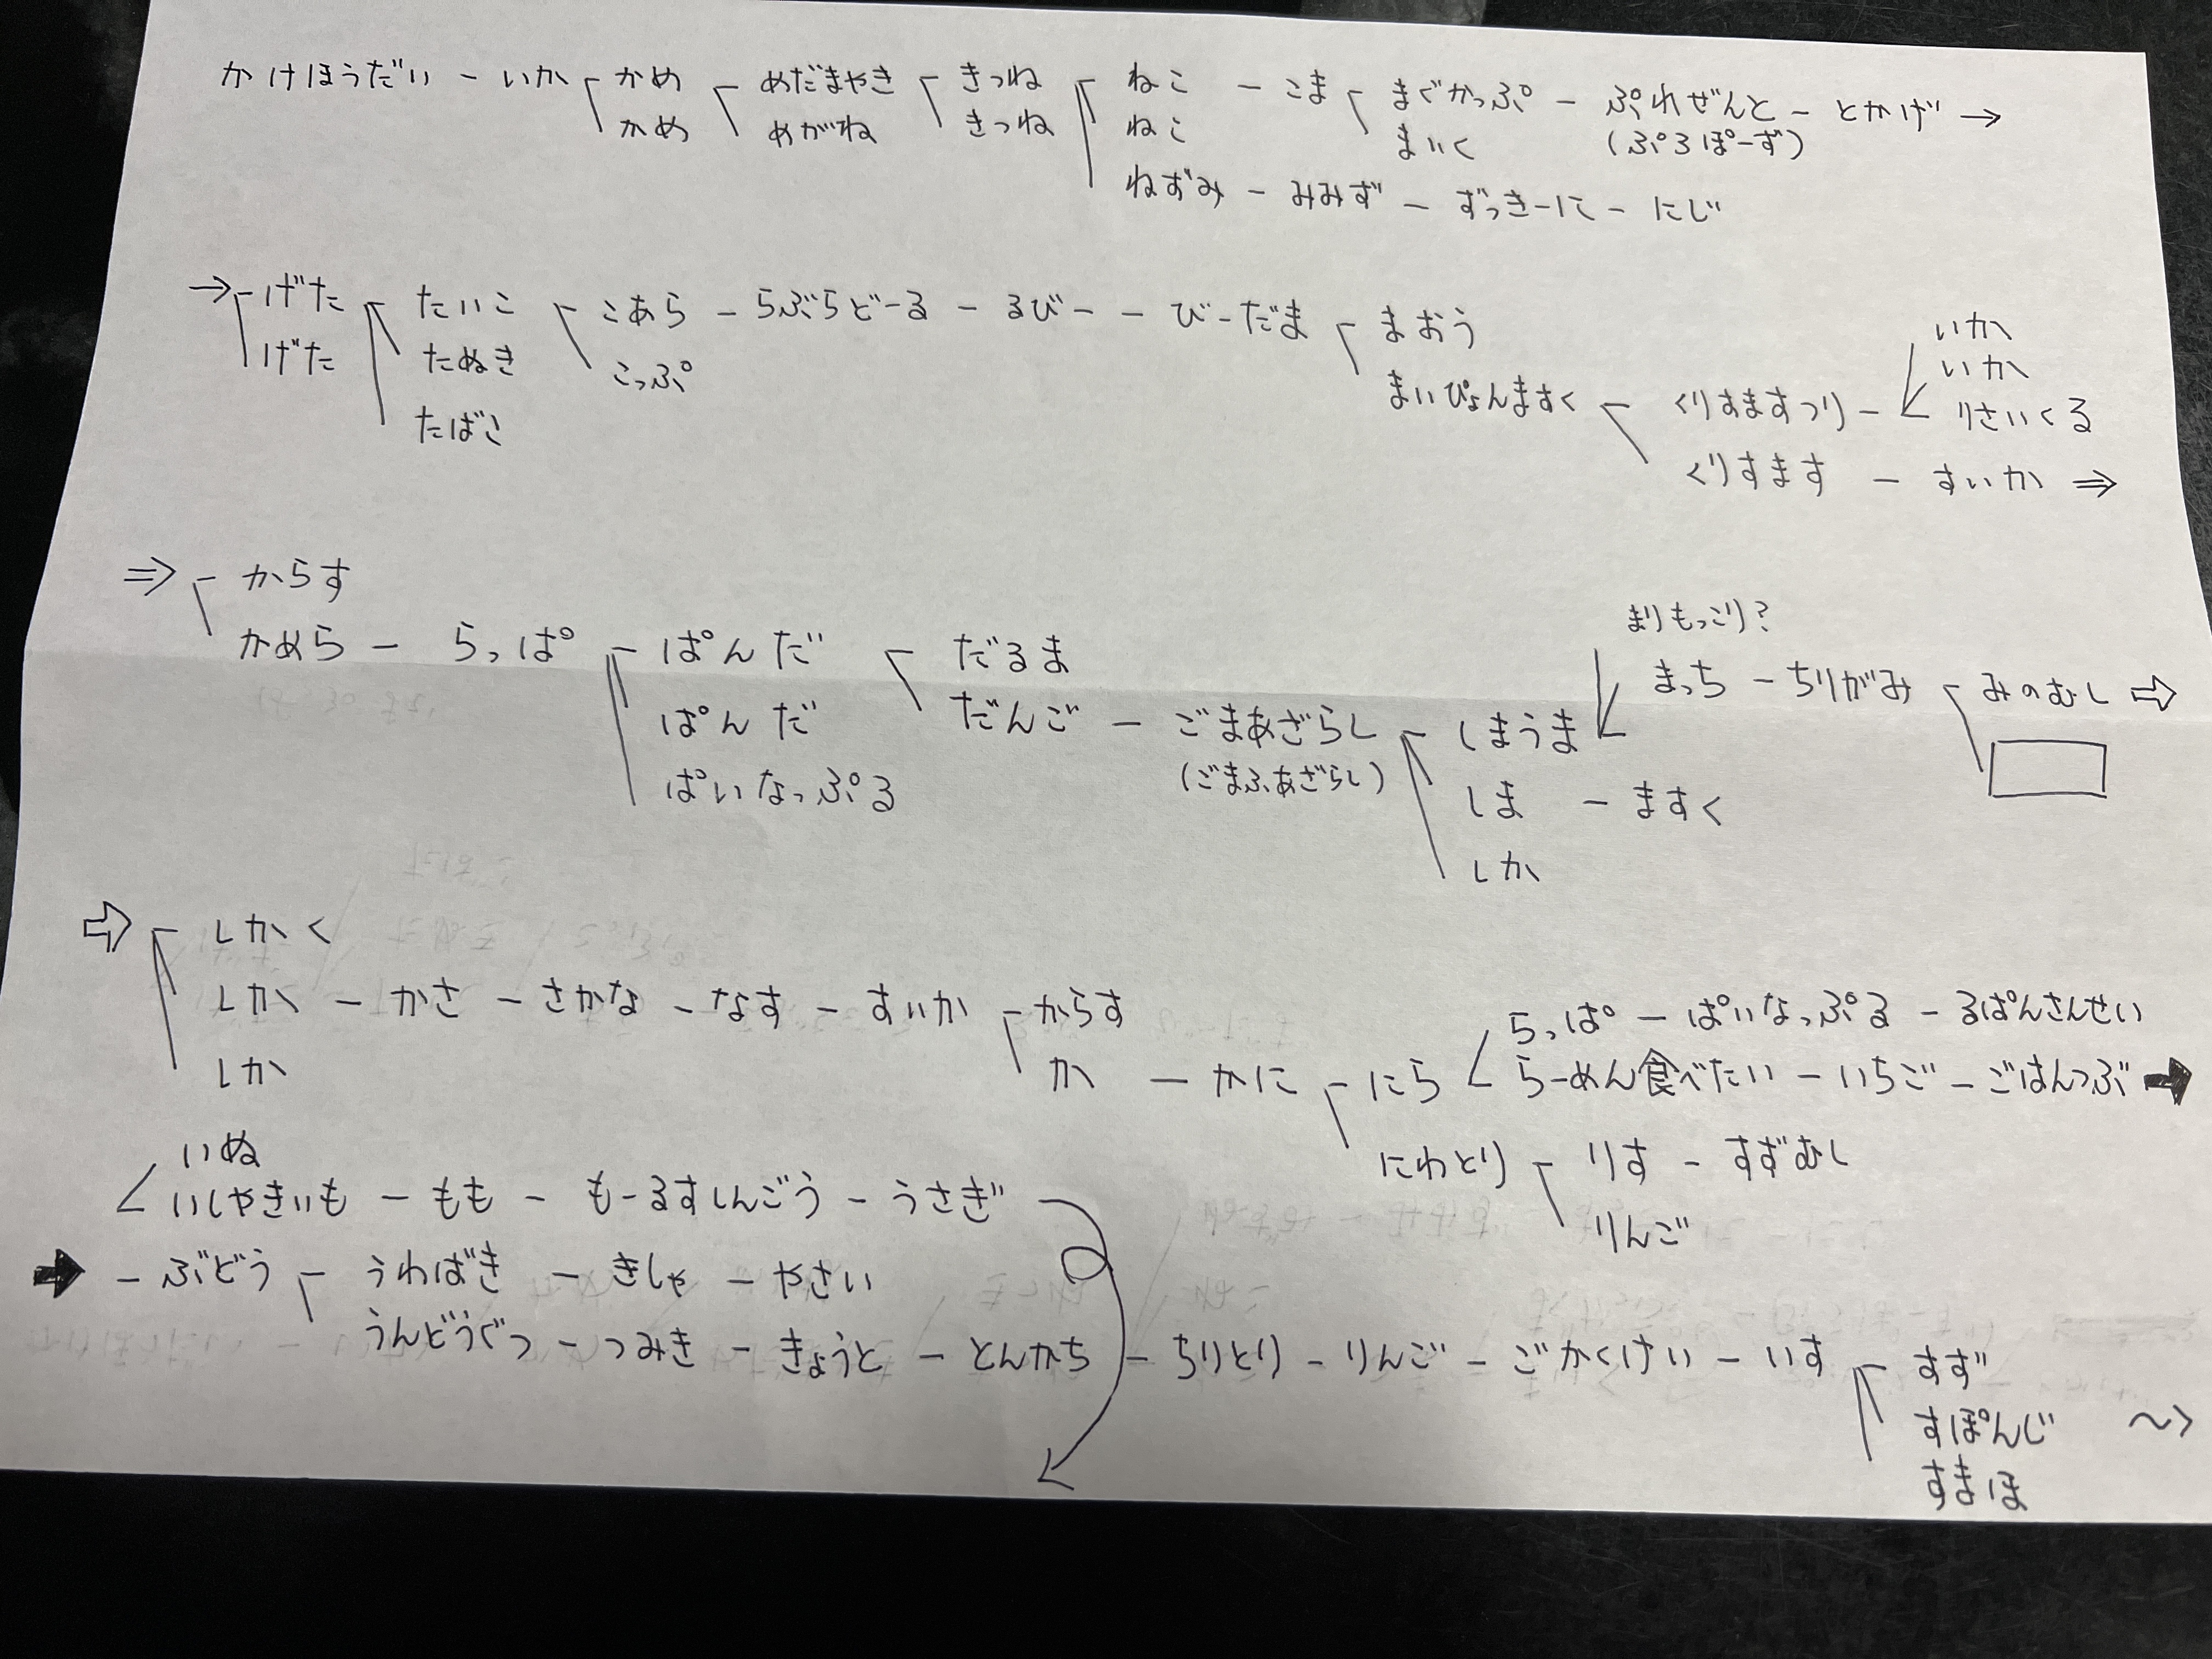 かけほうだい － いか かめ めだまやき きつね ねこ － こま まぐかっぷ － ぷれぜんと － とかげ →
かめ めがね きつね ねこ まいく (ぷろぽーず)
ねずみ － みみず － ずっきーに － にじ
→ げた たいこ こあら － らぶらどーる － るびー － びーだま まおう いか
げた たぬき こっぷ まいぴょんますく くりすますつり － いか
たばこ りさいくる
くりすます － すいか ⇒
⇒ からす まりもっこり?
かめら － らっぱ ぱんだ だるま まっち － ちりがみ みのむし ⇨
ぱんだ だんご － ごまあざらし しまうま
ぱいなっぷる (ごまふあざらし) しま － ますく
しか
⇨ しかく
しか － かさ － さかな － なす － すいか からす らっぱ － ぱいなっぷる － るぱんさんせい
しか か － かに － にら らーめん食べたい － いちご － ごはんつぶ ➡
いぬ にわとり りす － すずむし
いしやきいも － もも － もーるすしんごう － うさぎ りんご
➡ － ぶどう うわばき － きしゃ － やさい
うんどうぐつ － つみき － きょうと － とんかち － ちりとり － りんご － ごかくけい － いす すず
すぽんじ ～>
すまほ